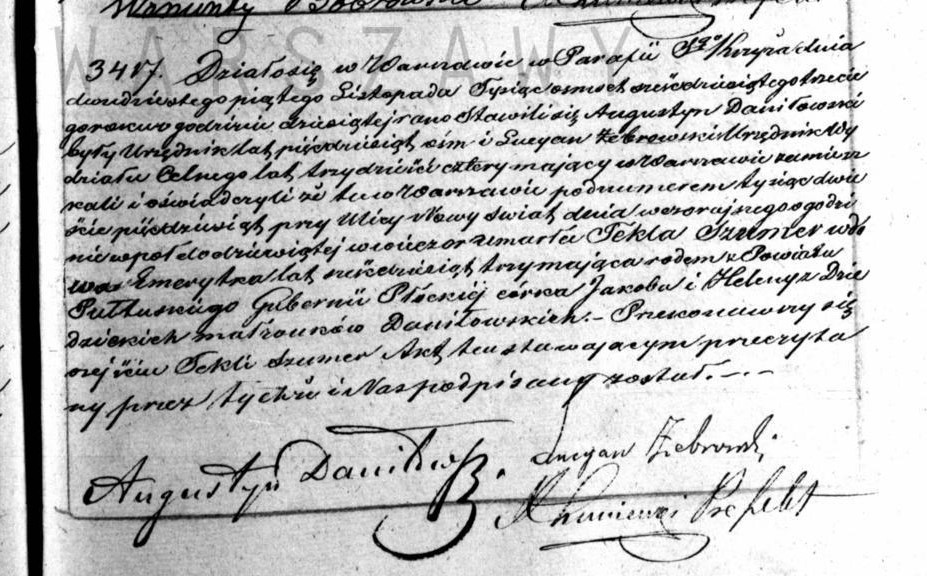 WARSZAWY
3417. Działo się w Warszawie w Parafii Sgo Krzyża dnia
dwudziestego piątego Listopada Tysiąc ośmset sześćdziesiątego trzecie
go roku o godzinie dziesiątej rano Stawili się Augustyn Daniłowski
były Urzędnik lat pięćdziesiąt ośm i Lucyan Żebrowski Urzędnik Wy
działu Celnego lat trzydzieści cztery mający w Warszawie zamiesz
kali i oświadczyli że tu w Warszawie pod numerem tysiąc dwie
ście pięćdziesiąt przy Ulicy Nowy Świat dnia wczorajszego o godzi
nie w pół do dziewiątej wieczór umarła Tekla Szumer wdo
wa Emerytka lat sześćdziesiąt trzy mająca rodem z Powiatu
Pułtuskiego Gubernii Płockiej córka Jakoba i Heleny z Dzie
dzickich małżonków Daniłowskich. – Przekonawszy się
o zejściu Tekli Szumer Akt ten stawającym przeczyta
ny przez tychże i Nas podpisany został. – . –
Augustyn Daniłowski. Lucyan Żebrowski
Prefekt